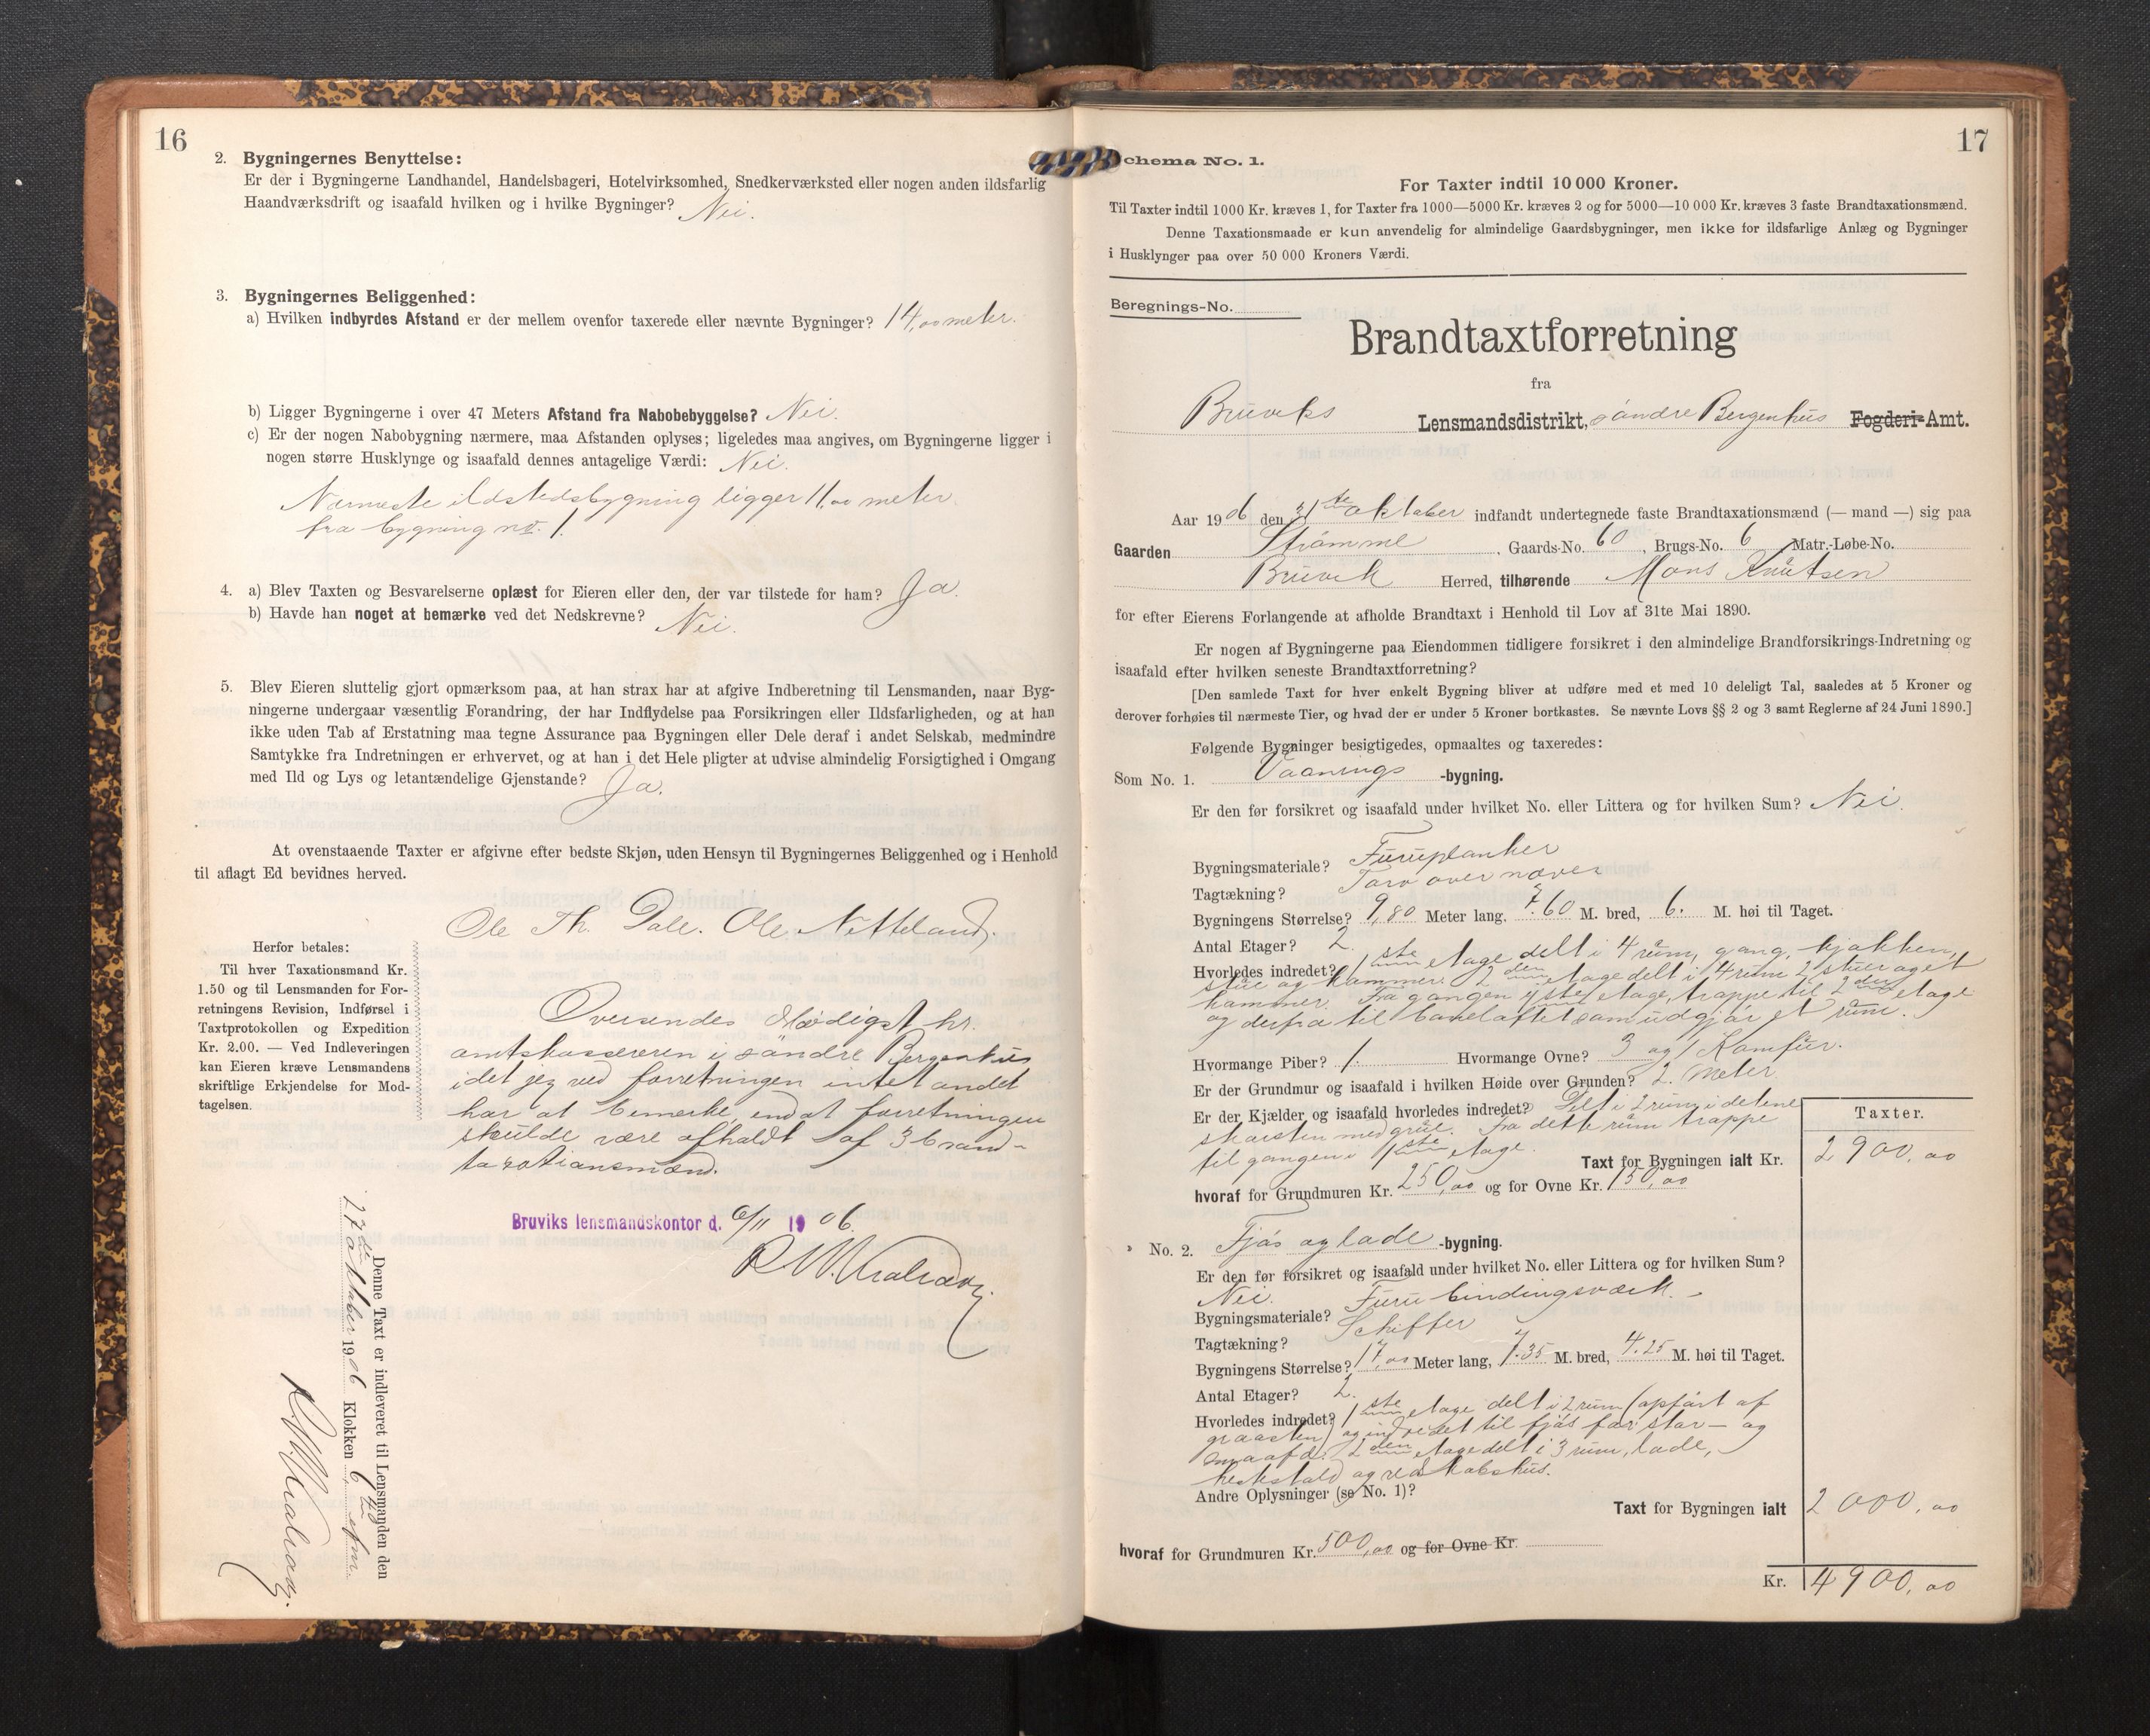 16
2. Bygningernes Benyttelse:
Er der i Bygningerne Landhandel, Handelsbageri, Hotelvirksomhed, Snedkerværksted eller nogen anden ildsfarlig
Haandværksdrift og isaafald hvilken og i hvilke Bygninger? Nei.
3. Bygningernes Beliggenhed:
a) Hvilken indbyrdes Afstand er der mellem ovenfor taxerede eller nævnte Bygninger? 14,00 meter.
b) Ligger Bygningerne i over 47 Meters Afstand fra Nabobebyggelse? Nei.
c) Er der nogen Nabobygning nærmere, maa Afstanden oplyses; ligeledes maa angives, om Bygningerne ligger i
nogen større Husklynge og isaafald dennes antagelige Værdi: Nei.
Nærmeste ildstedsbygning ligger 11,00 meter
fra bygning no. 1.
4. a) Blev Taxten og Besvarelserne oplæst for Eieren eller den, der var tilstede for ham? Ja.
b) Havde han noget at bemærke ved det Nedskrevne? Nei.
5. Blev Eieren sluttelig gjort opmærksom paa, at han strax har at afgive Indberetning til Lensmanden, naar Byg-
ningerne undergaar væsentlig Forandring, der har Indflydelse paa Forsikringen eller Ildsfarligheden, og at han
ikke uden Tab af Erstatning maa tegne Assurance paa Bygningen eller Dele deraf i andet Selskab, medmindre
Samtykke fra Indretningen er erhvervet, og at han i det Hele pligter at udvise almindelig Forsigtighed i Omgang
med Ild og Lys og letantændelige Gjenstande? Ja.
At ovenstaaende Taxter er afgivne efter bedste Skjøn, uden Hensyn til Bygningernes Beliggenhed og i Henhold
til aflagt Ed bevidnes herved.
Ole Th. Dale. Ole Netteland.
Herfor betales:
Til hver Taxationsmand Kr.
1.50 og til Lensmanden for For-
retningens Revision, Indførsel i
Taxtprotokollen og Expedition
Kr. 2.00. — Ved Indleveringen
kan Eieren kræve Lensmandens
skriftlige Erkjendelse for Mod-
tagelsen.
Oversendes ærbødigst hr.
amtskassereren i søndre Bergenhus
idet jeg ved forretningen intet andet
har at bemerke, end at forretningen
skulde være afholdt af 3 brand-
taxationsmænd.
Bruviks lensmandskontor d. 6/11 1906.
Denne Taxt er indleveret til Lensmanden den
27de oktober 1906 Klokken 6 efm.
17
Schema No. 1.
For Taxter indtil 10 000 Kroner.
Til Taxter indtil 1000 Kr. kræves 1, for Taxter fra 1000—5000 Kr. kræves 2 og for 5000—10 000 Kr. kræves 3 faste Brandtaxationsmænd.
Denne Taxationsmaade er kun anvendelig for almindelige Gaardsbygninger, men ikke for ildsfarlige Anlæg og Bygninger
i Husklynger paa over 50 000 Kroners Værdi.
Beregnings-No.
Brandtaxtforretning
fra
Bruviks Lensmandsdistrikt, søndre Bergenhus Fogderi-Amt.
Aar 1906 den 21te oktober indfandt undertegnede faste Brandtaxationsmænd (— mand —) sig paa
Gaarden Strømme, Gaards-No. 60, Brugs-No. 6 Matr.-Løbe-No.
Bruvik Herred, tilhørende Mons Knutsen
for efter Eierens Forlangende at afholde Brandtaxt i Henhold til Lov af 31te Mai 1890.
Er nogen af Bygningerne paa Eiendommen tidligere forsikret i den almindelige Brandforsikrings-Indretning og
isaafald efter hvilken seneste Brandtaxtforretning?
[Den samlede Taxt for hver enkelt Bygning bliver at udføre med et med 10 deleligt Tal, saaledes at 5 Kroner og
derover forhøies til nærmeste Tier, og hvad der er under 5 Kroner bortkastes. Se nævnte Lovs §§ 2 og 3 samt Reglerne af 24 Juni 1890.]
Følgende Bygninger besigtigedes, opmaaltes og taxeredes:
Som No. 1. Vaanings -bygning.
Er den før forsikret og isaafald under hvilket No. eller Littera og for hvilken Sum? Nei.
Bygningsmateriale? Furuplanker
Tagtækning? Torv over næver
Bygningens Størrelse? 9,80 Meter lang, 7.60 M. bred, 6. M. høi til Taget.
Antal Etager? 2.
Hvorledes indredet? 1ste etage delt i 4 rum, gang, kjøkken,
stue og kammer. 2den etage delt i 4 rum 2 stuer og et
kammer. Fra gangen i 1ste etage, trappe til 2den etage
og derfra til baneloftet som udgjør et rum.
Hvormange Piber? 1. Hvormange Ovne? 3 og 1 Komfur.
Er der Grundmur og isaafald i hvilken Høide over Grunden? 2. meter
Er der Kjælder og isaafald hvorledes indredet? Delt i 2 rum i det ene
skorsten med grue. Fra dette rum trappe
til gangen i 1ste etage.
Taxter.
Taxt for Bygningen ialt Kr. 2900,00
hvoraf for Grundmuren Kr. 250,00 og for Ovne Kr. 150,00
No. 2. Fjøs og lade -bygning.
Er den før forsikret og isaafald under hvilket No. eller Littera og for hvilken Sum?
Nei.
Bygningsmateriale? Furu bindingsværk.
Tagtækning? Schiffer
Bygningens Størrelse? 17,00 Meter lang, 7.35 M. bred, 4.25 M. høi til Taget.
Antal Etager? 2.
Hvorledes indredet? 1ste etage delt i 2 rum (opført af
graasten) og indredet til fjøs for stor- og
smaafæ. 2den etage delt i 3 rum, lade,
hestestald og redskabshus.
Andre Oplysninger (se No. 1)?
Taxt for Bygningen ialt 2000,00
hvoraf for Grundmuren Kr. 500,00 og for Ovne Kr.
Kr. 4900,00